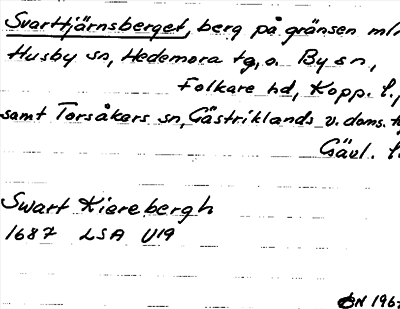 Svarttjärnsberget, berg på gränsen m/n
Husby sn, Hedemora tg, o. By sn,
Folkare hd, Kopp. l.,
samt Torsåkers sn, Gästriklands v. doms. tg
Gävl. l.
Swart Kiarebergh
1687 LSA U19
1967